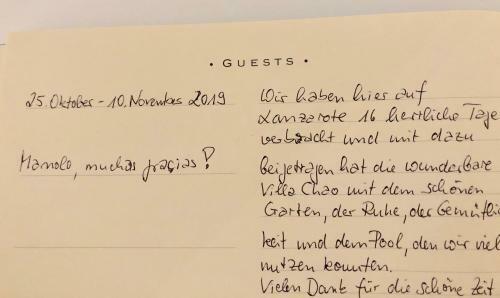 • GUESTS •
25. Oktober - 10. November 2019
Manolo, muchas gracias!
Wir haben hier auf
Lanzarote 16 herrliche Tage
verbracht und mit dazu
beigetragen hat die wunderbare
Villa Chao mit dem schönen
Garten, der Ruhe, der Gemütlich
keit und dem Pool, den wir viel
nutzen konnten.
Vielen Dank für die schöne Zeit